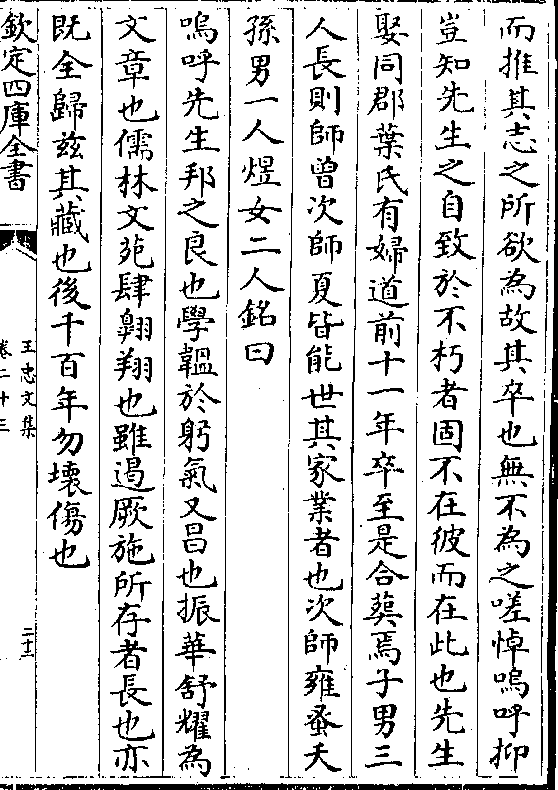 而推其志之所欲為故其卒也無不為之嗟悼嗚呼抑
豈知先生之自致於不朽者固不在彼而在此也先生
娶同郡葉氏有婦道前十一年卒至是合葬焉子男三
人長則師曾次師夏皆能世其家業者也次師雍蚤夭
孫男一人煜女二人銘曰
嗚呼先生邦之良也學韞於躬氣又昌也振華舒耀為
文章也儒林文苑肆翱翔也雖遏厥施所存者長也亦
既全歸茲其藏也後千百年勿壞傷也
欽定四庫全書
王忠文集
卷二十三
二十二